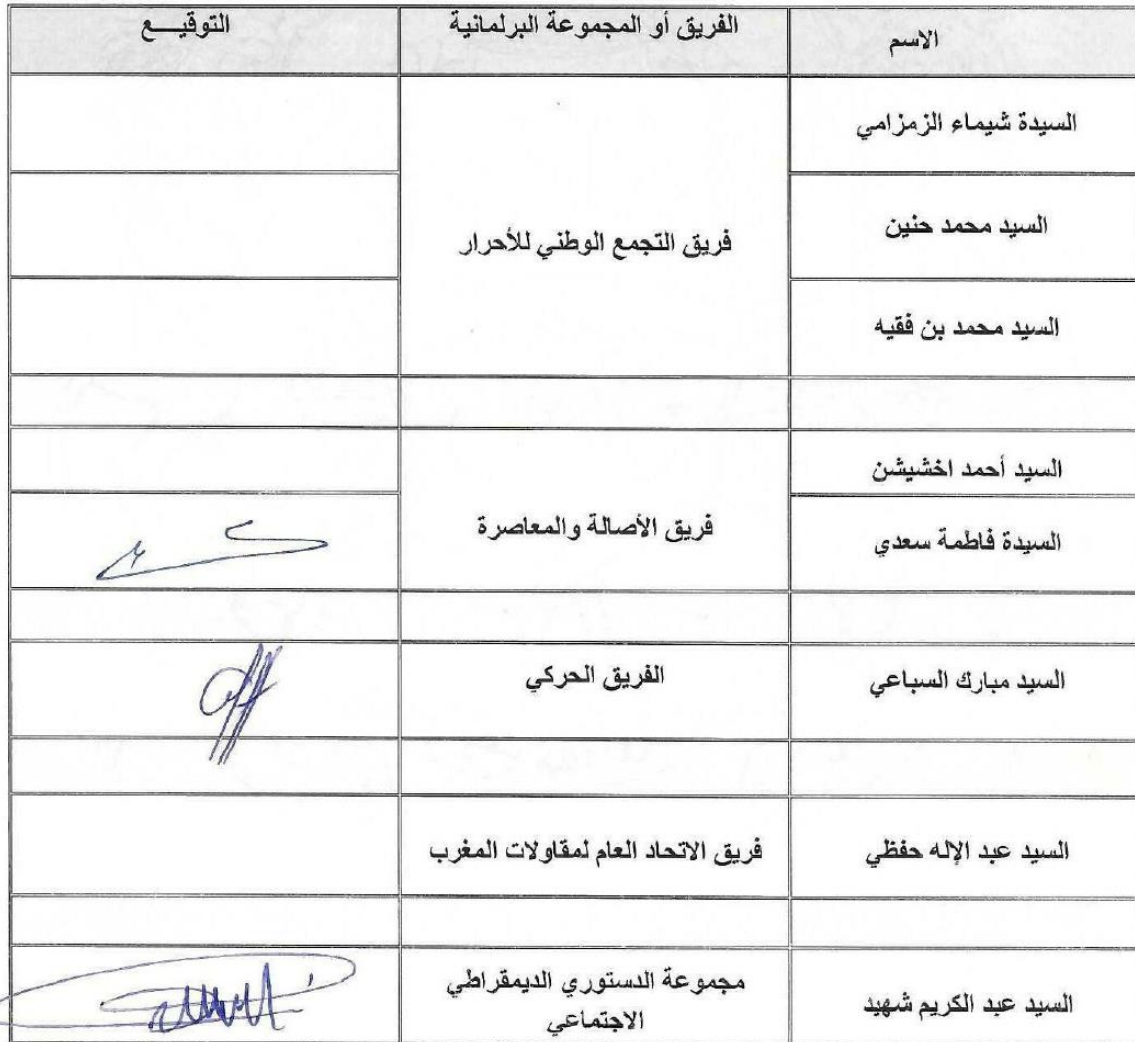 الاسم
الفريق أو المجموعة البرلمانية
التوقيـــع
السيدة شيماء الزمزامي
السيد محمد حنين
فريق التجمع الوطني للأحرار
السيد محمد بن فقيه
السيد أحمد اخشيشن
فريق الأصالة والمعاصرة
السيدة فاطمة سعدي
السيد مبارك السباعي
الفريق الحركي
السيد عبد الإله حفظي
فريق الاتحاد العام لمقاولات المغرب
السيد عبد الكريم شهيد
مجموعة الدستوري الديمقراطي
الاجتماعي